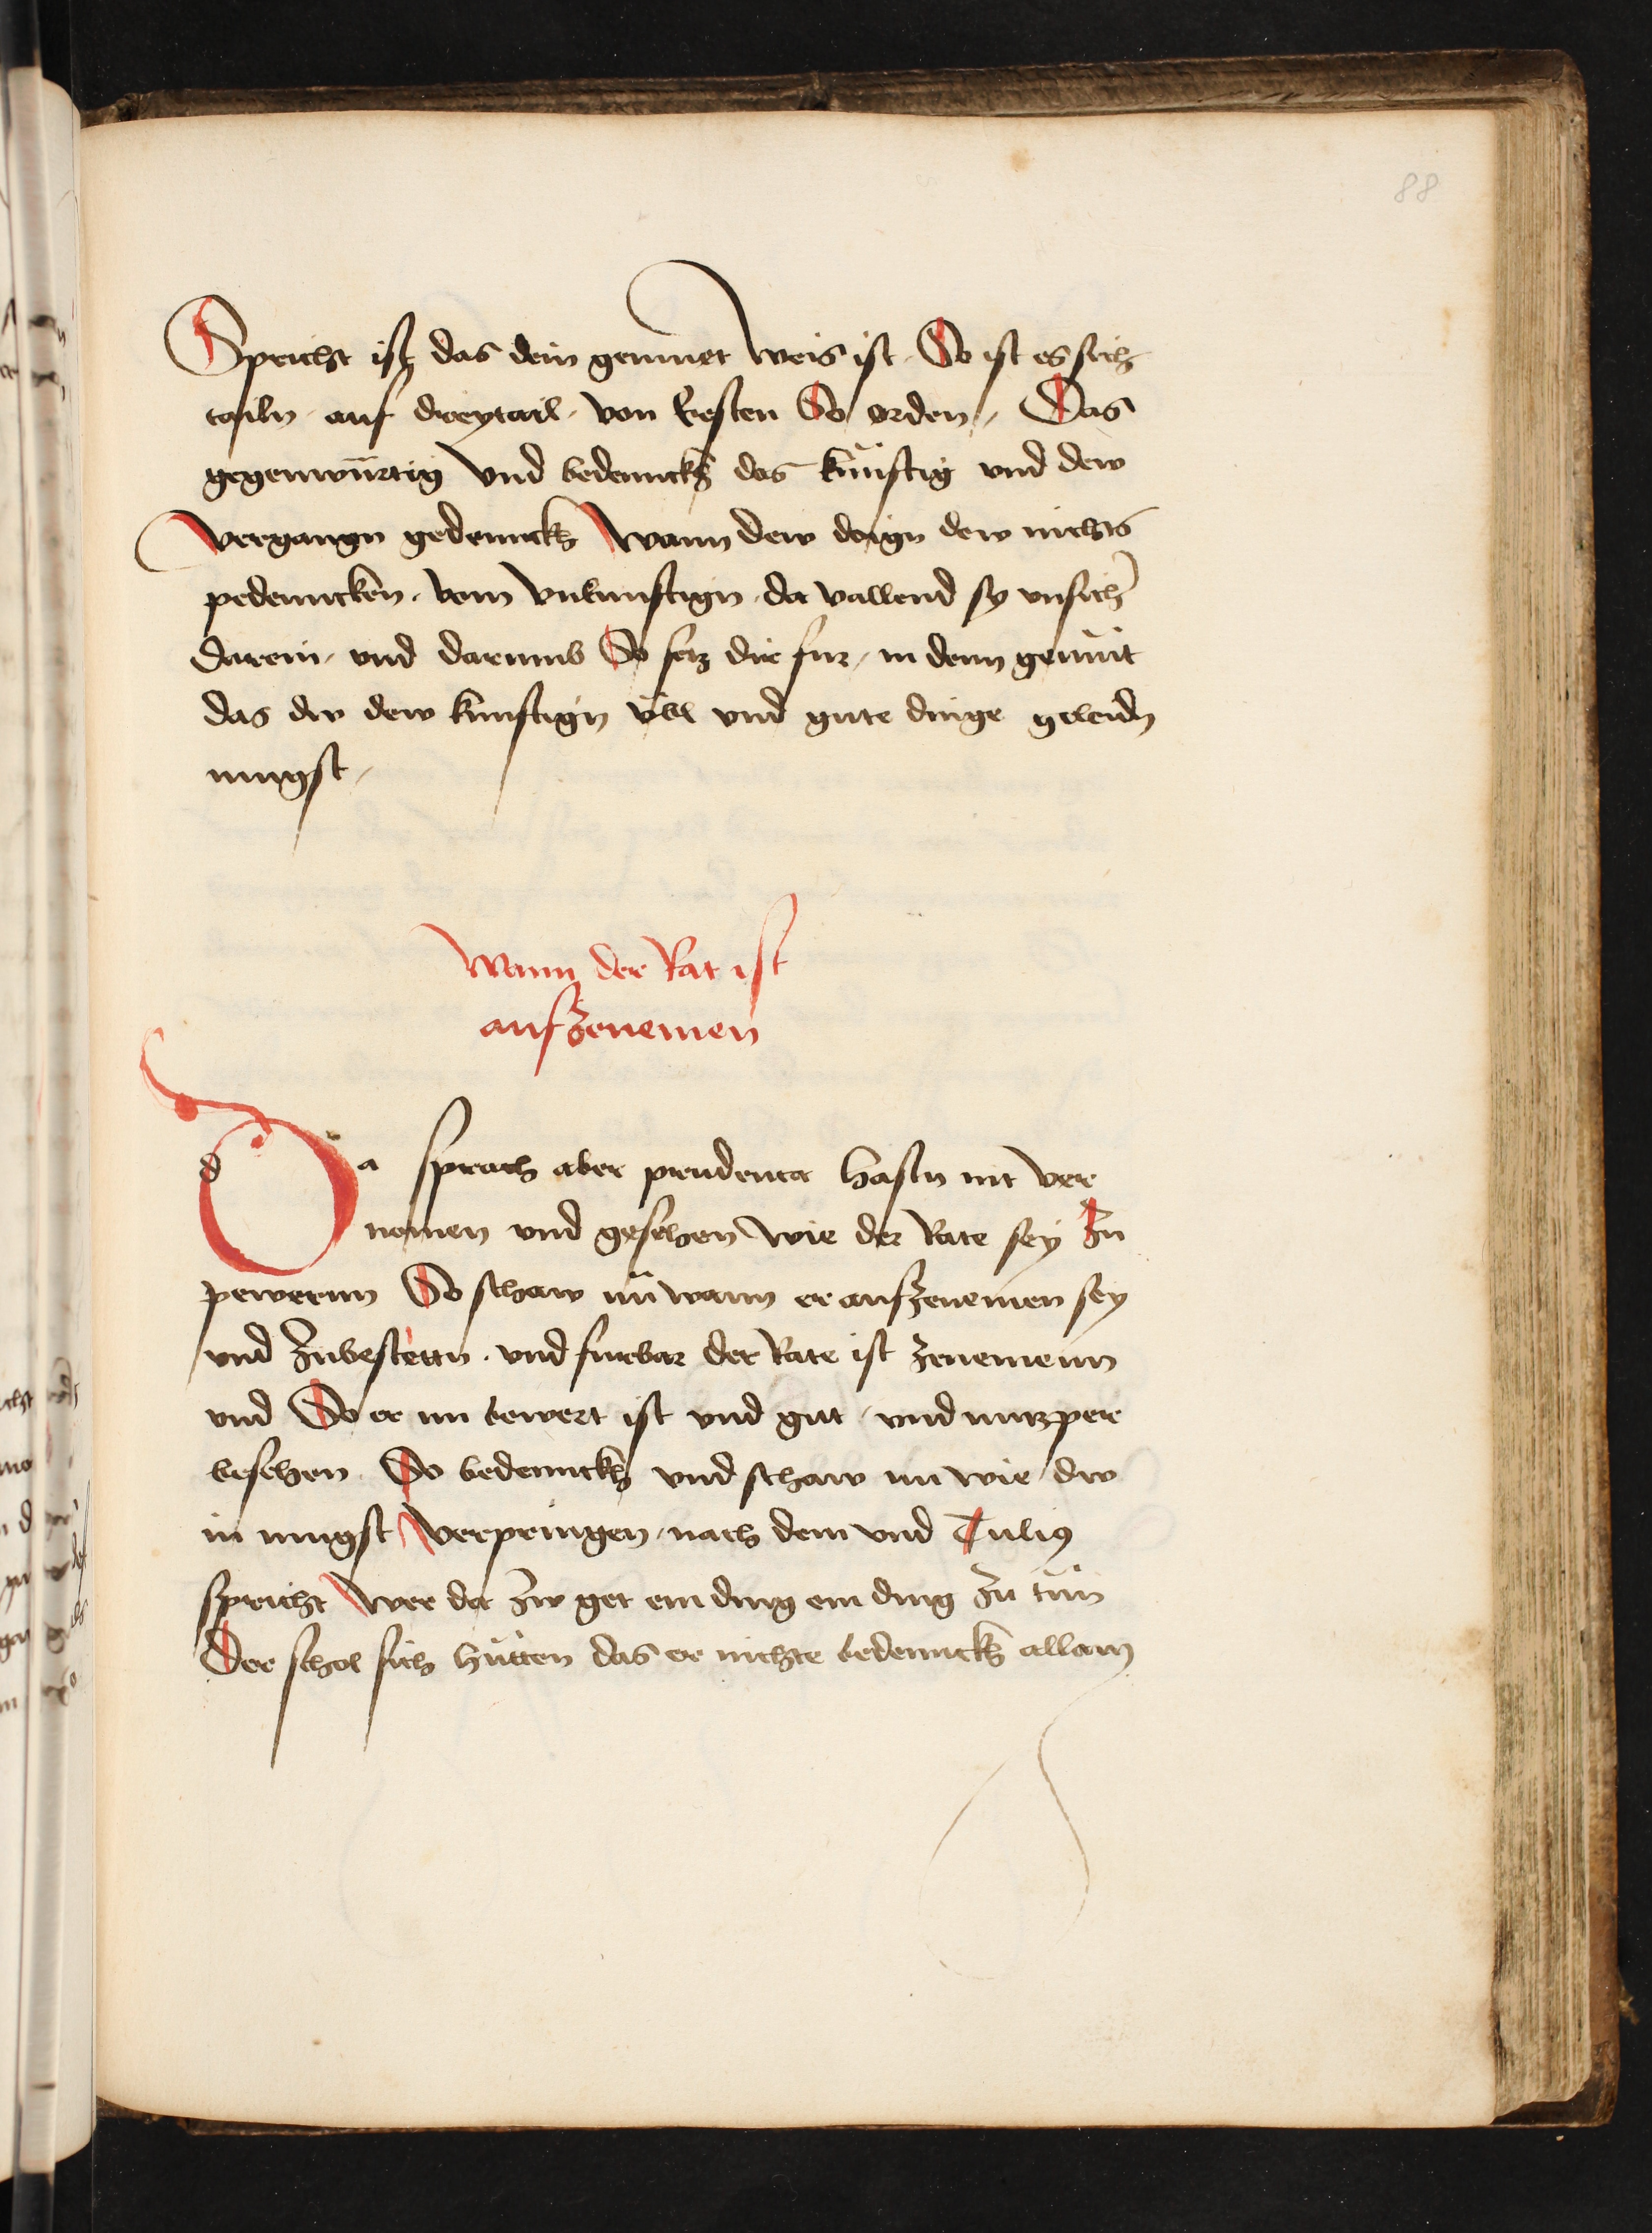 88
Spricht ist das dein gemuet weis ist · So ist es sich
tailn · auf dreytail · von Ersten So orden / Das
gegenwürtig Vnd bedennckh das künftig vnd dew
Vergangn gedennckh Wann dew deign dew nichts
pedenncken · vom Vnkunftign · da vallend sy vnsich
darein / vnd darumb So setz dir fur / in denn gemüt
das dw dew kunftign übl vnd gute dinge geleidn
mugst /
Wann der Rat ist
aufzenemen
Da sprach aber prudentia Hastu nit ver
nomen vnd gesehen wie der Rate sey Zu
pewernn So schaw nu wann er aufzenemen sey
vnd Zubestettn · vnd furbar der Rate ist zenemenn
vnd So er nu bewert ist vnd gut / vnd nutzper
besehen · So bedennckh vnd schaw nu wie dw
in mugst Verpringen / nach dem vnd Tulius
spricht Wer da zw get ein ding ein ding Zu tün
Der schol sich hütten das er nichte bedennckh allain